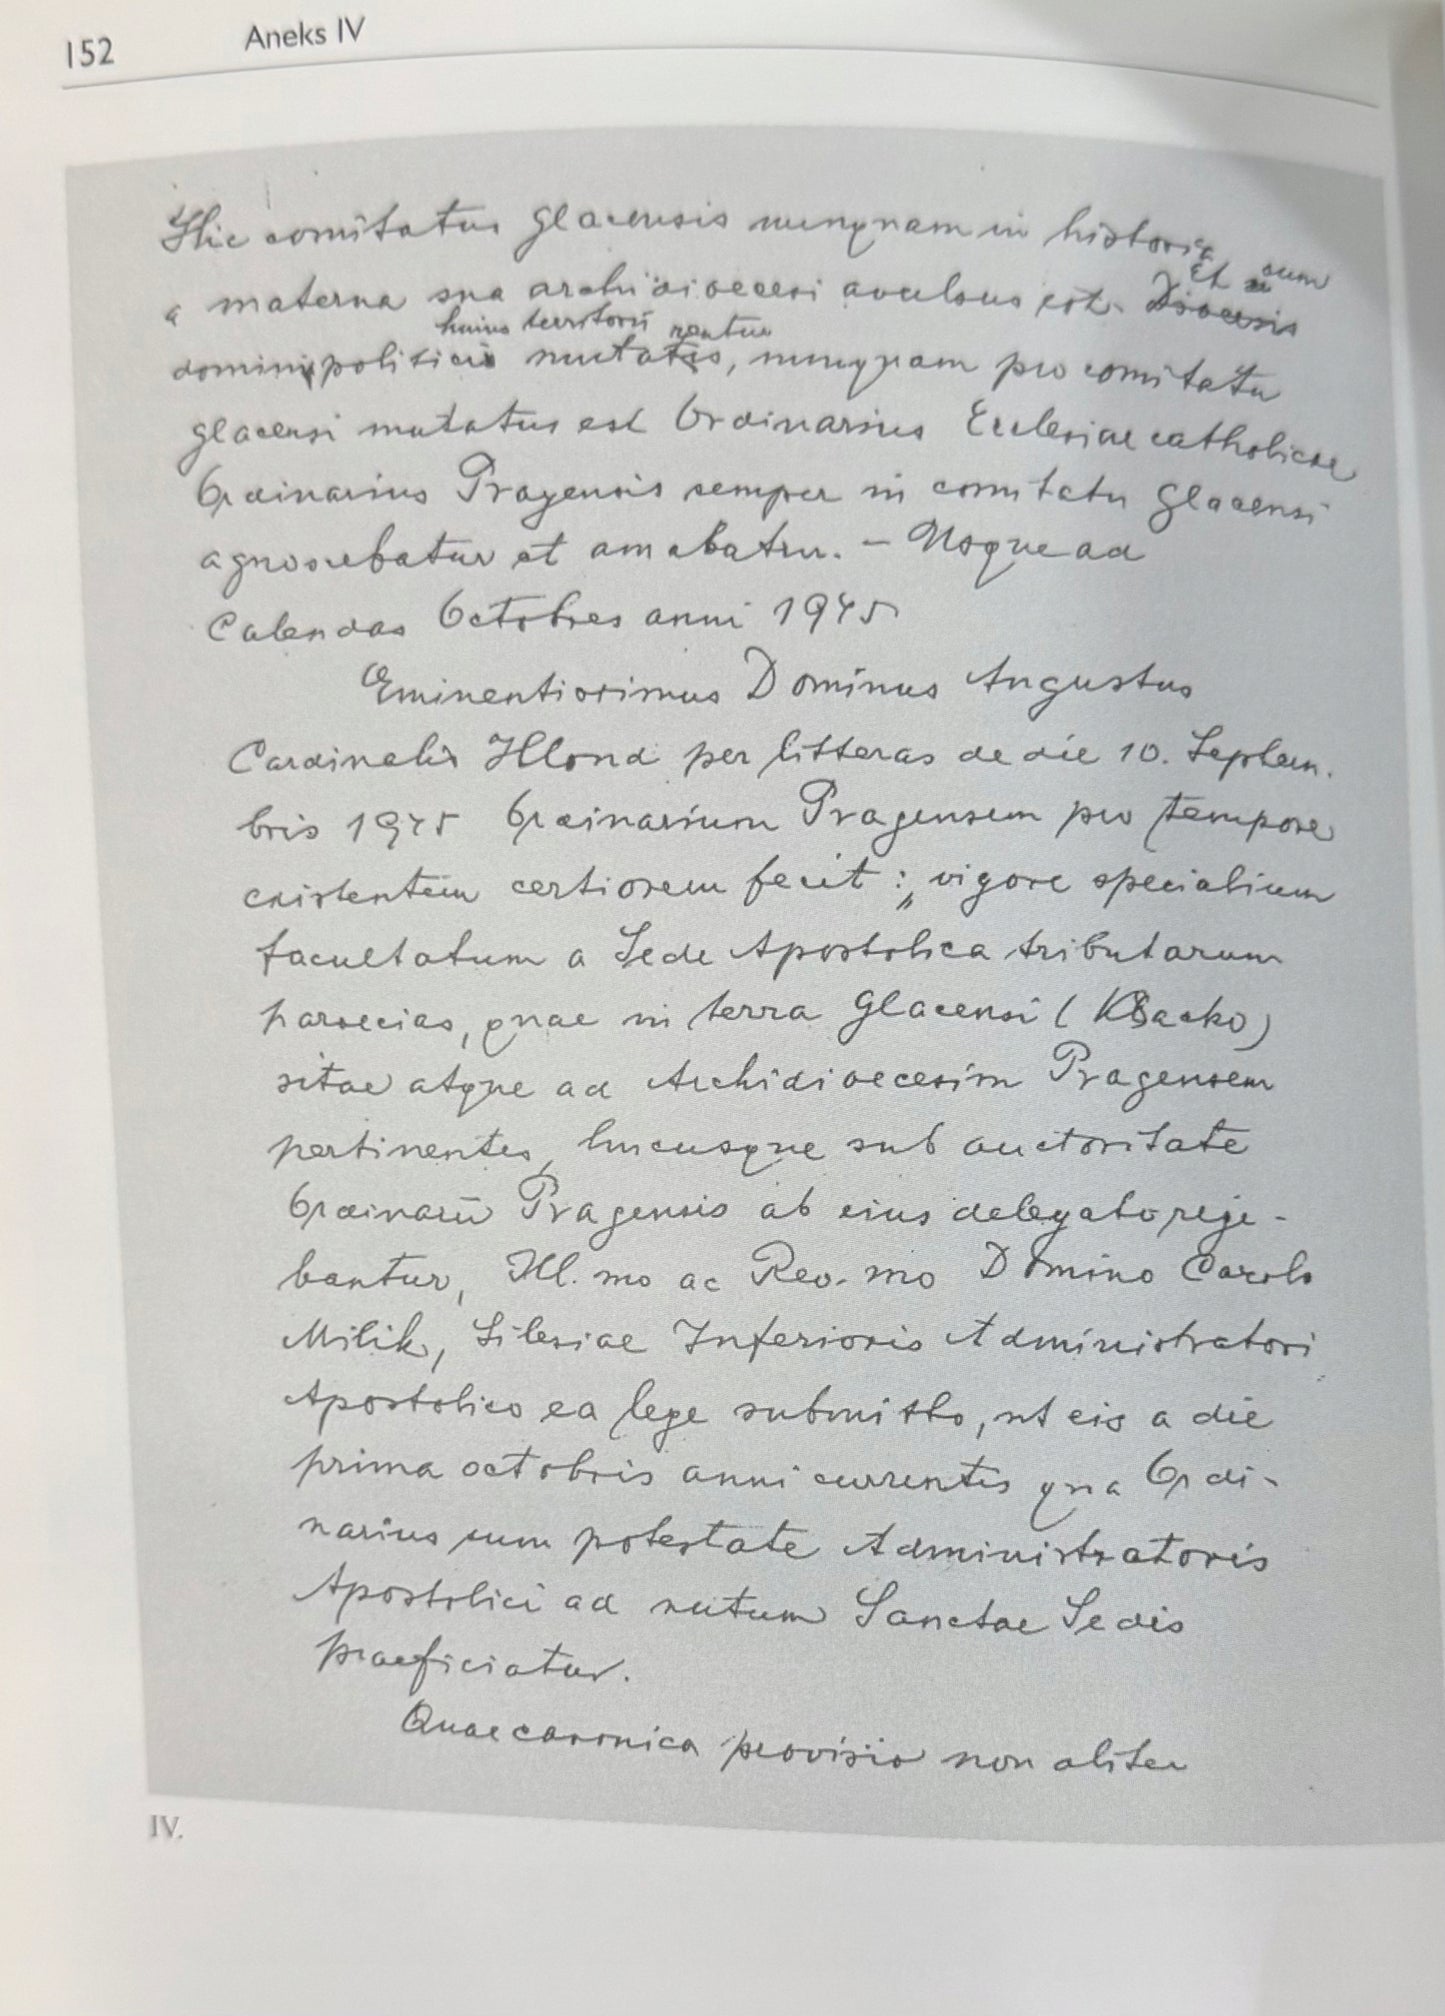 152 Aneks IV
Hic comitatus glacensis nunquam in historia
a materna sua archidioecesi avulsus est. Et cum
huius territorii rentur
domini politici mutatis, nunquam pro comitatu
glacensi mutatus est Ordinarius Ecclesiae catholicae
Ordinarius Pragensis semper in comitatu glacensi
agnoscebatur et amabatur. – Usque ad
Calendas Octobres anni 1945
Eminentissimus Dominus Augustus
Cardinalis Hlond per litteras de die 10. Septem-
bris 1945 Ordinarium Pragensem pro tempore
existentem certiorem fecit: „vigore specialium
facultatum a Sede Apostolica tributarum
paroecias, quae in terra Glacensi (Kłacko)
sitae atque ad Archidioecesim Pragensem
pertinentes, hucusque sub auctoritate
Ordinarii Pragensis ab eius delegato rege-
bantur, Ill.mo ac Rev.mo Domino Carolo
Milik, Silesiae Inferioris Administratori
Apostolico ea lege submitto, ut eis a die
prima octobris anni currentis qua Ordi-
narius cum potestate Administratoris
Apostolici ad nutum Sanctae Sedis
praeficiatur.
Quae canonica provisio non aliter
IV.